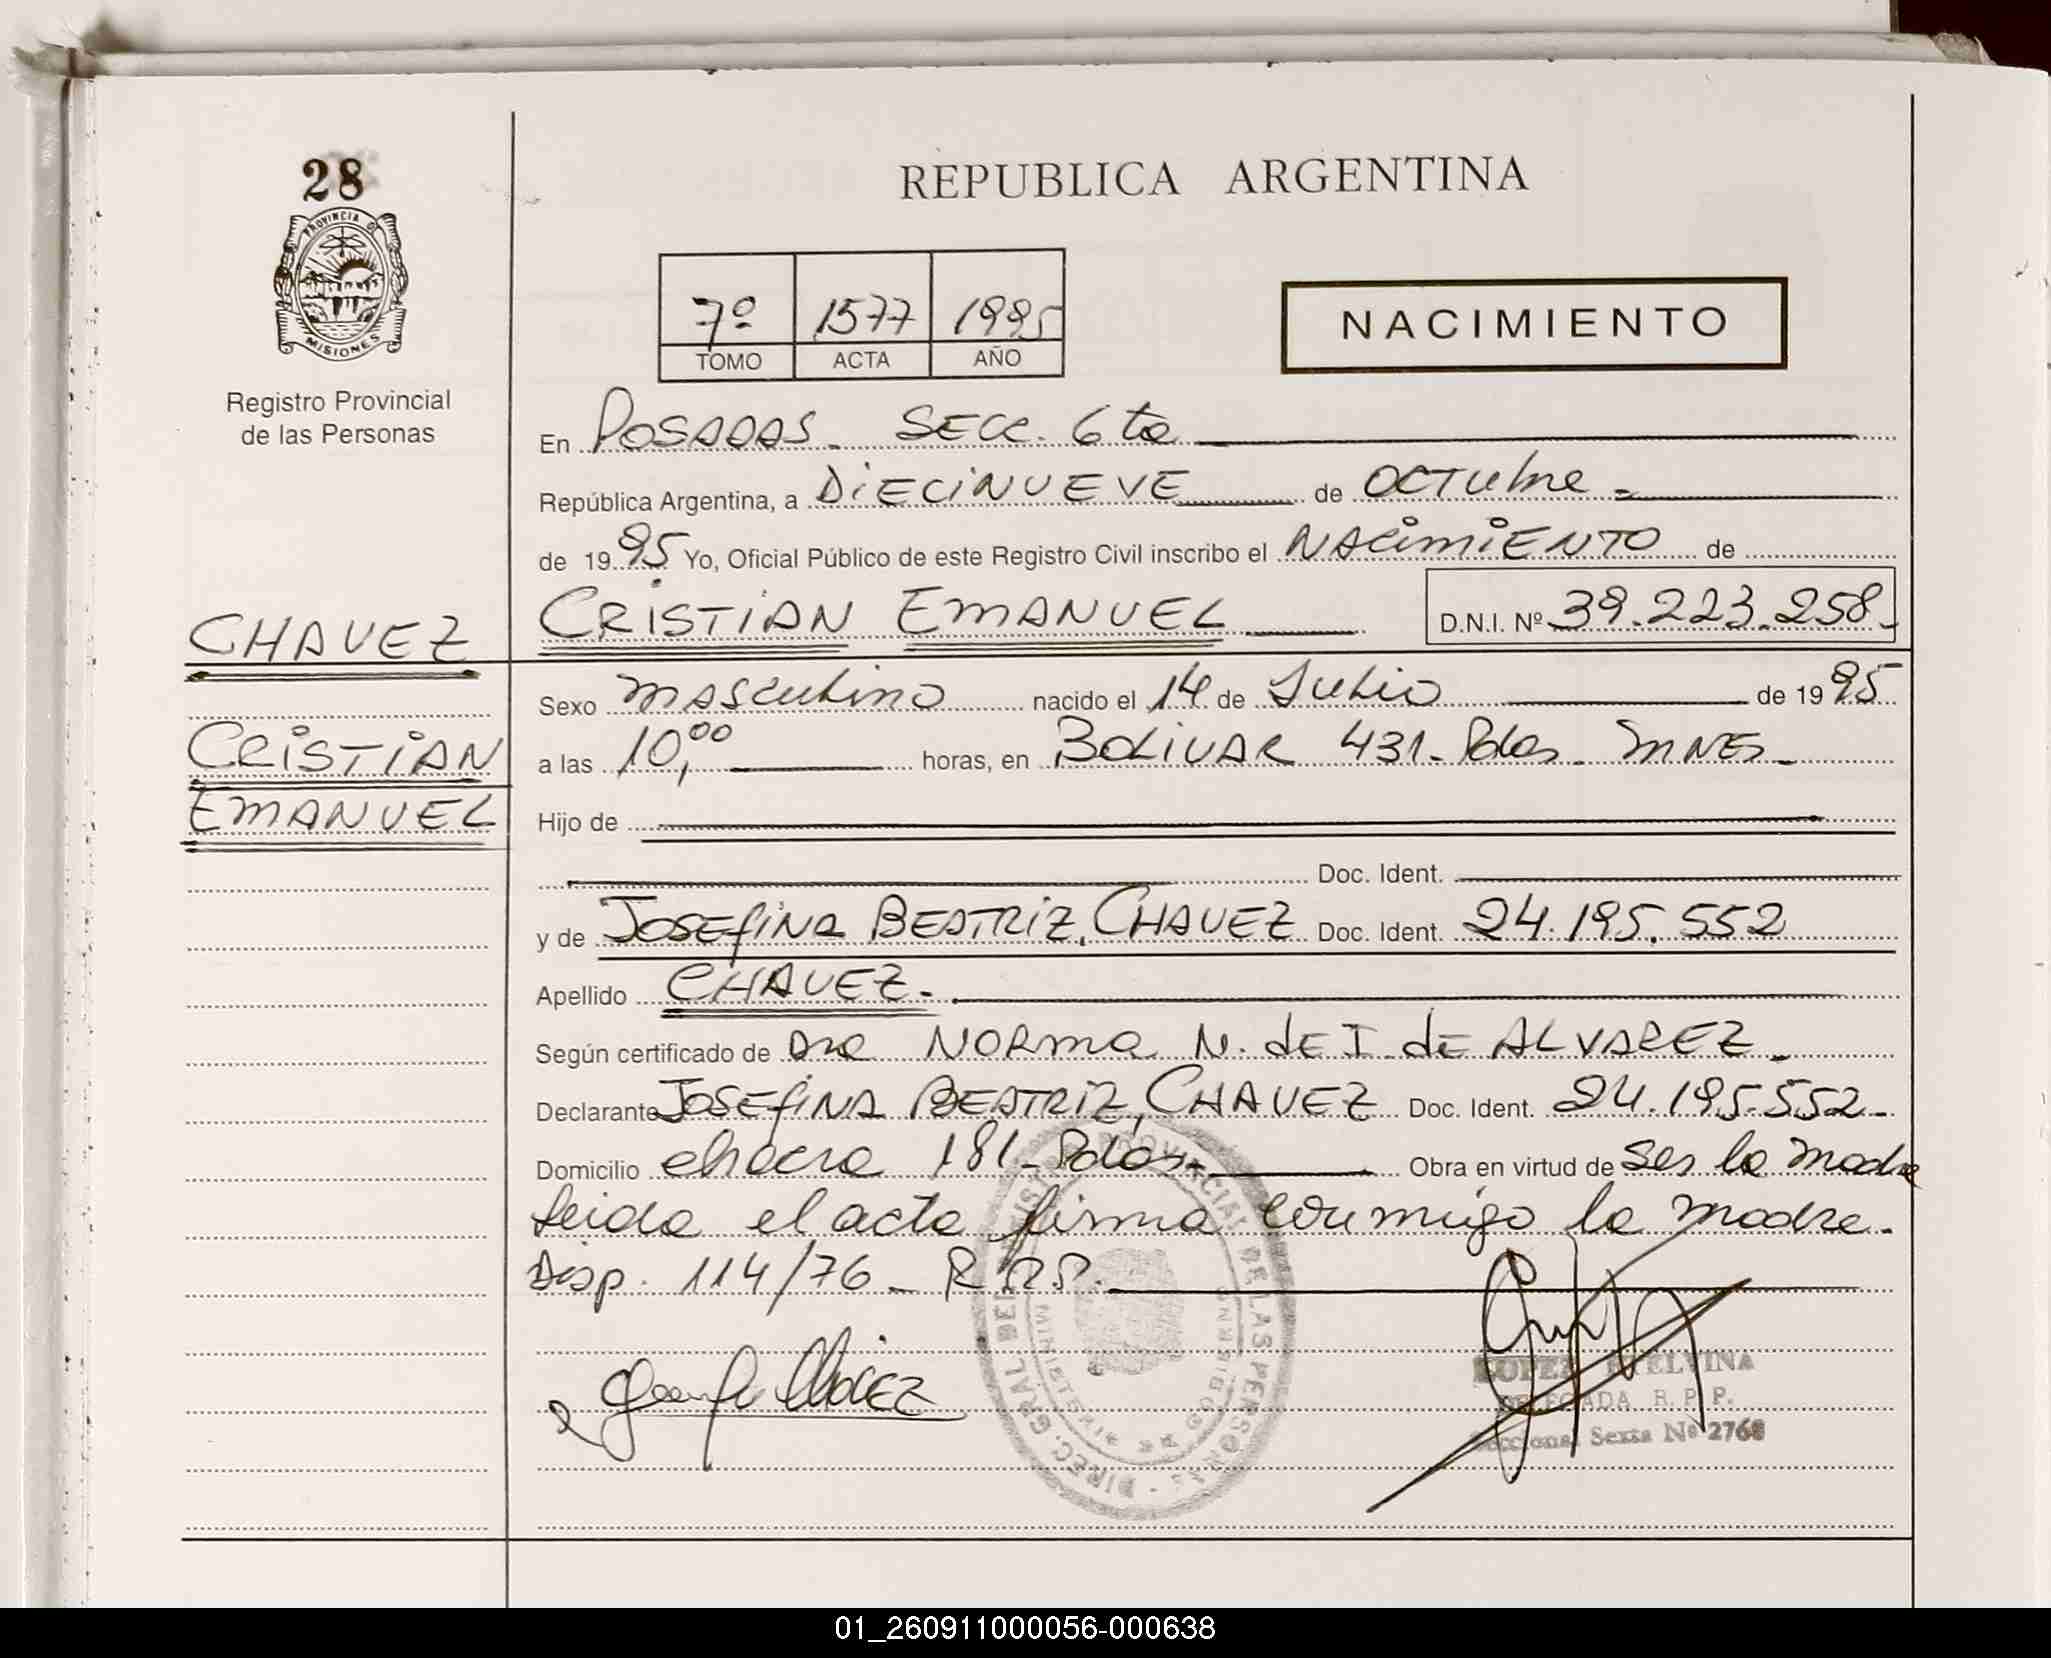 28
PROVINCIA D
MISIONES
Registro Provincial
de las Personas
REPUBLICA ARGENTINA
7º 1577 1995
TOMO ACTA AÑO
NACIMIENTO
En POSADAS. SECC. 6ta
República Argentina, a DIECINUEVE de OCTUbre
de 1995 Yo, Oficial Público de este Registro Civil inscribo el NACIMIENTO de
CRISTIAN EMANUEL D.N.I. Nº 39.223.258
CHAVEZ
CRISTIAN
EMANUEL
Sexo masculino nacido el 14 de Julio de 1995
a las 10,00 horas, en BOLIVAR 431 - Pdas - MNES
Hijo de
Doc. Ident.
y de JOSEfiNA BEATRIZ CHAVEZ Doc. Ident. 24.195.552
Apellido CHAVEZ.
Según certificado de Dra NORMA N. de I. de ALVAREZ
Declarante JOSEfiNA BEATRIZ CHAVEZ Doc. Ident. 24.195.552
Domicilio chacra 181 - Pdas - Obra en virtud de ser la madre
leida el acta firma conmigo la madre.
Disp. 114/76 - R.P.P.
DIREC. GRAL DEL REGISTRO PROVINCIAL DE LAS PERSONAS
MINISTERIO DE GOBIERNO
LOPEZ ETELVINA
DELEGADA R. P. P.
Seccional Sexta Nº 2768
01_260911000056-000638